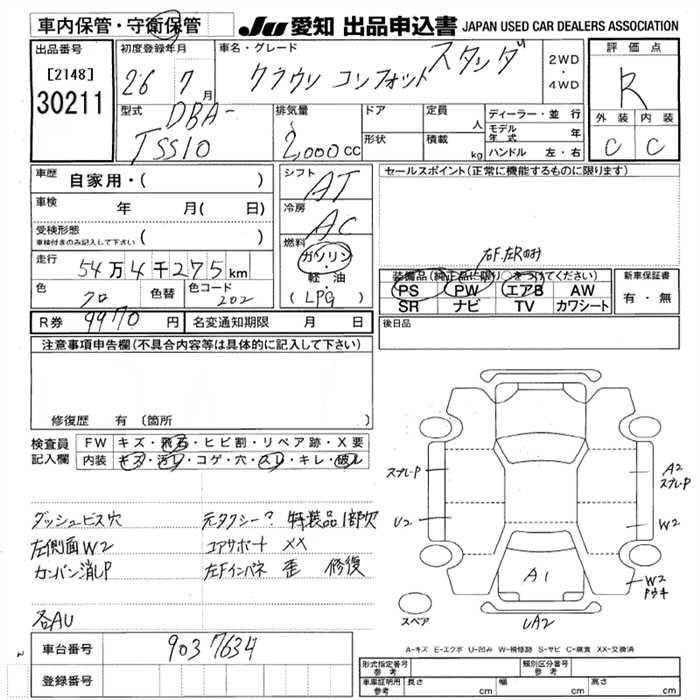 車内保管・守衛保管
JU 愛知 出品申込書 JAPAN USED CAR DEALERS ASSOCIATION
出品番号
[2148]
30211
初度登録年月
26 7月
車名・グレード
クラウン コンフォート スタンダ
2WD
・
4WD
評価点
R
外装 内装
C C
型式
DBA-
TSS10
排気量
2,000cc
ドア
形状
定員
人
積載
kg
ディーラー・並行
モデル年式 年
ハンドル 左・右
車歴
自家用・( )
車検
年 月( 日)
受検形態
車検付きのみ記入して下さい ( )
走行
54万4千275km
色
クロ
色替
色コード
202
シフト
AT
冷房
AC
燃料
ガソリン
・
軽・油
(LPG)
セールスポイント(正常に機能するものに限ります)
右F.左Rのみ
装備品(純正品に限り○をつけてください)
PS PW エアB AW
SR ナビ TV カワシート
新車保証書
有・無
R券 9970円
名変通知期限 月 日
後日品
注意事項申告欄(不具合内容等は具体的に記入して下さい)
修復歴 有〔箇所
検査員記入欄
FW キズ・飛石・ヒビ割・リペア跡・X要
内装 キズ・汚レ・コゲ・穴・スレ・キレ・破レ
ダッシュビス穴
左側面W2
カンバン消しP
各AU
元タクシー? 特装品1部欠
コアサポート XX
左Fインパネ 歪 修復
スプレーP
U2
A2
スプレーP
W2
W2
トウキ
A1
UA2
スペア
A-キズ E-エクボ U-凹み W-補修跡 S-サビ C-腐食 XX-交換済
車台番号
9037634
登録番号
形式指定番号
参考
類別区分番号
参考
車庫証明用
参考
長さ cm
幅 cm
高さ cm